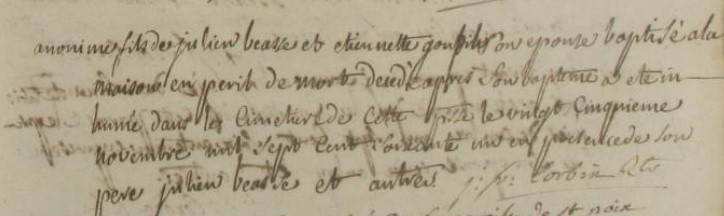 anonime fils de julien beasse et etiennette goupil son epouse baptisé a la
maison en peril de mort decedé apres son bapteme a ete in-
humé dans le Cimetiere de cette psse le vingt Cinquieme
novembre mil sept Cent soixante un en presence de son
pere julien beasse et autres j. fr. Corbin
de st